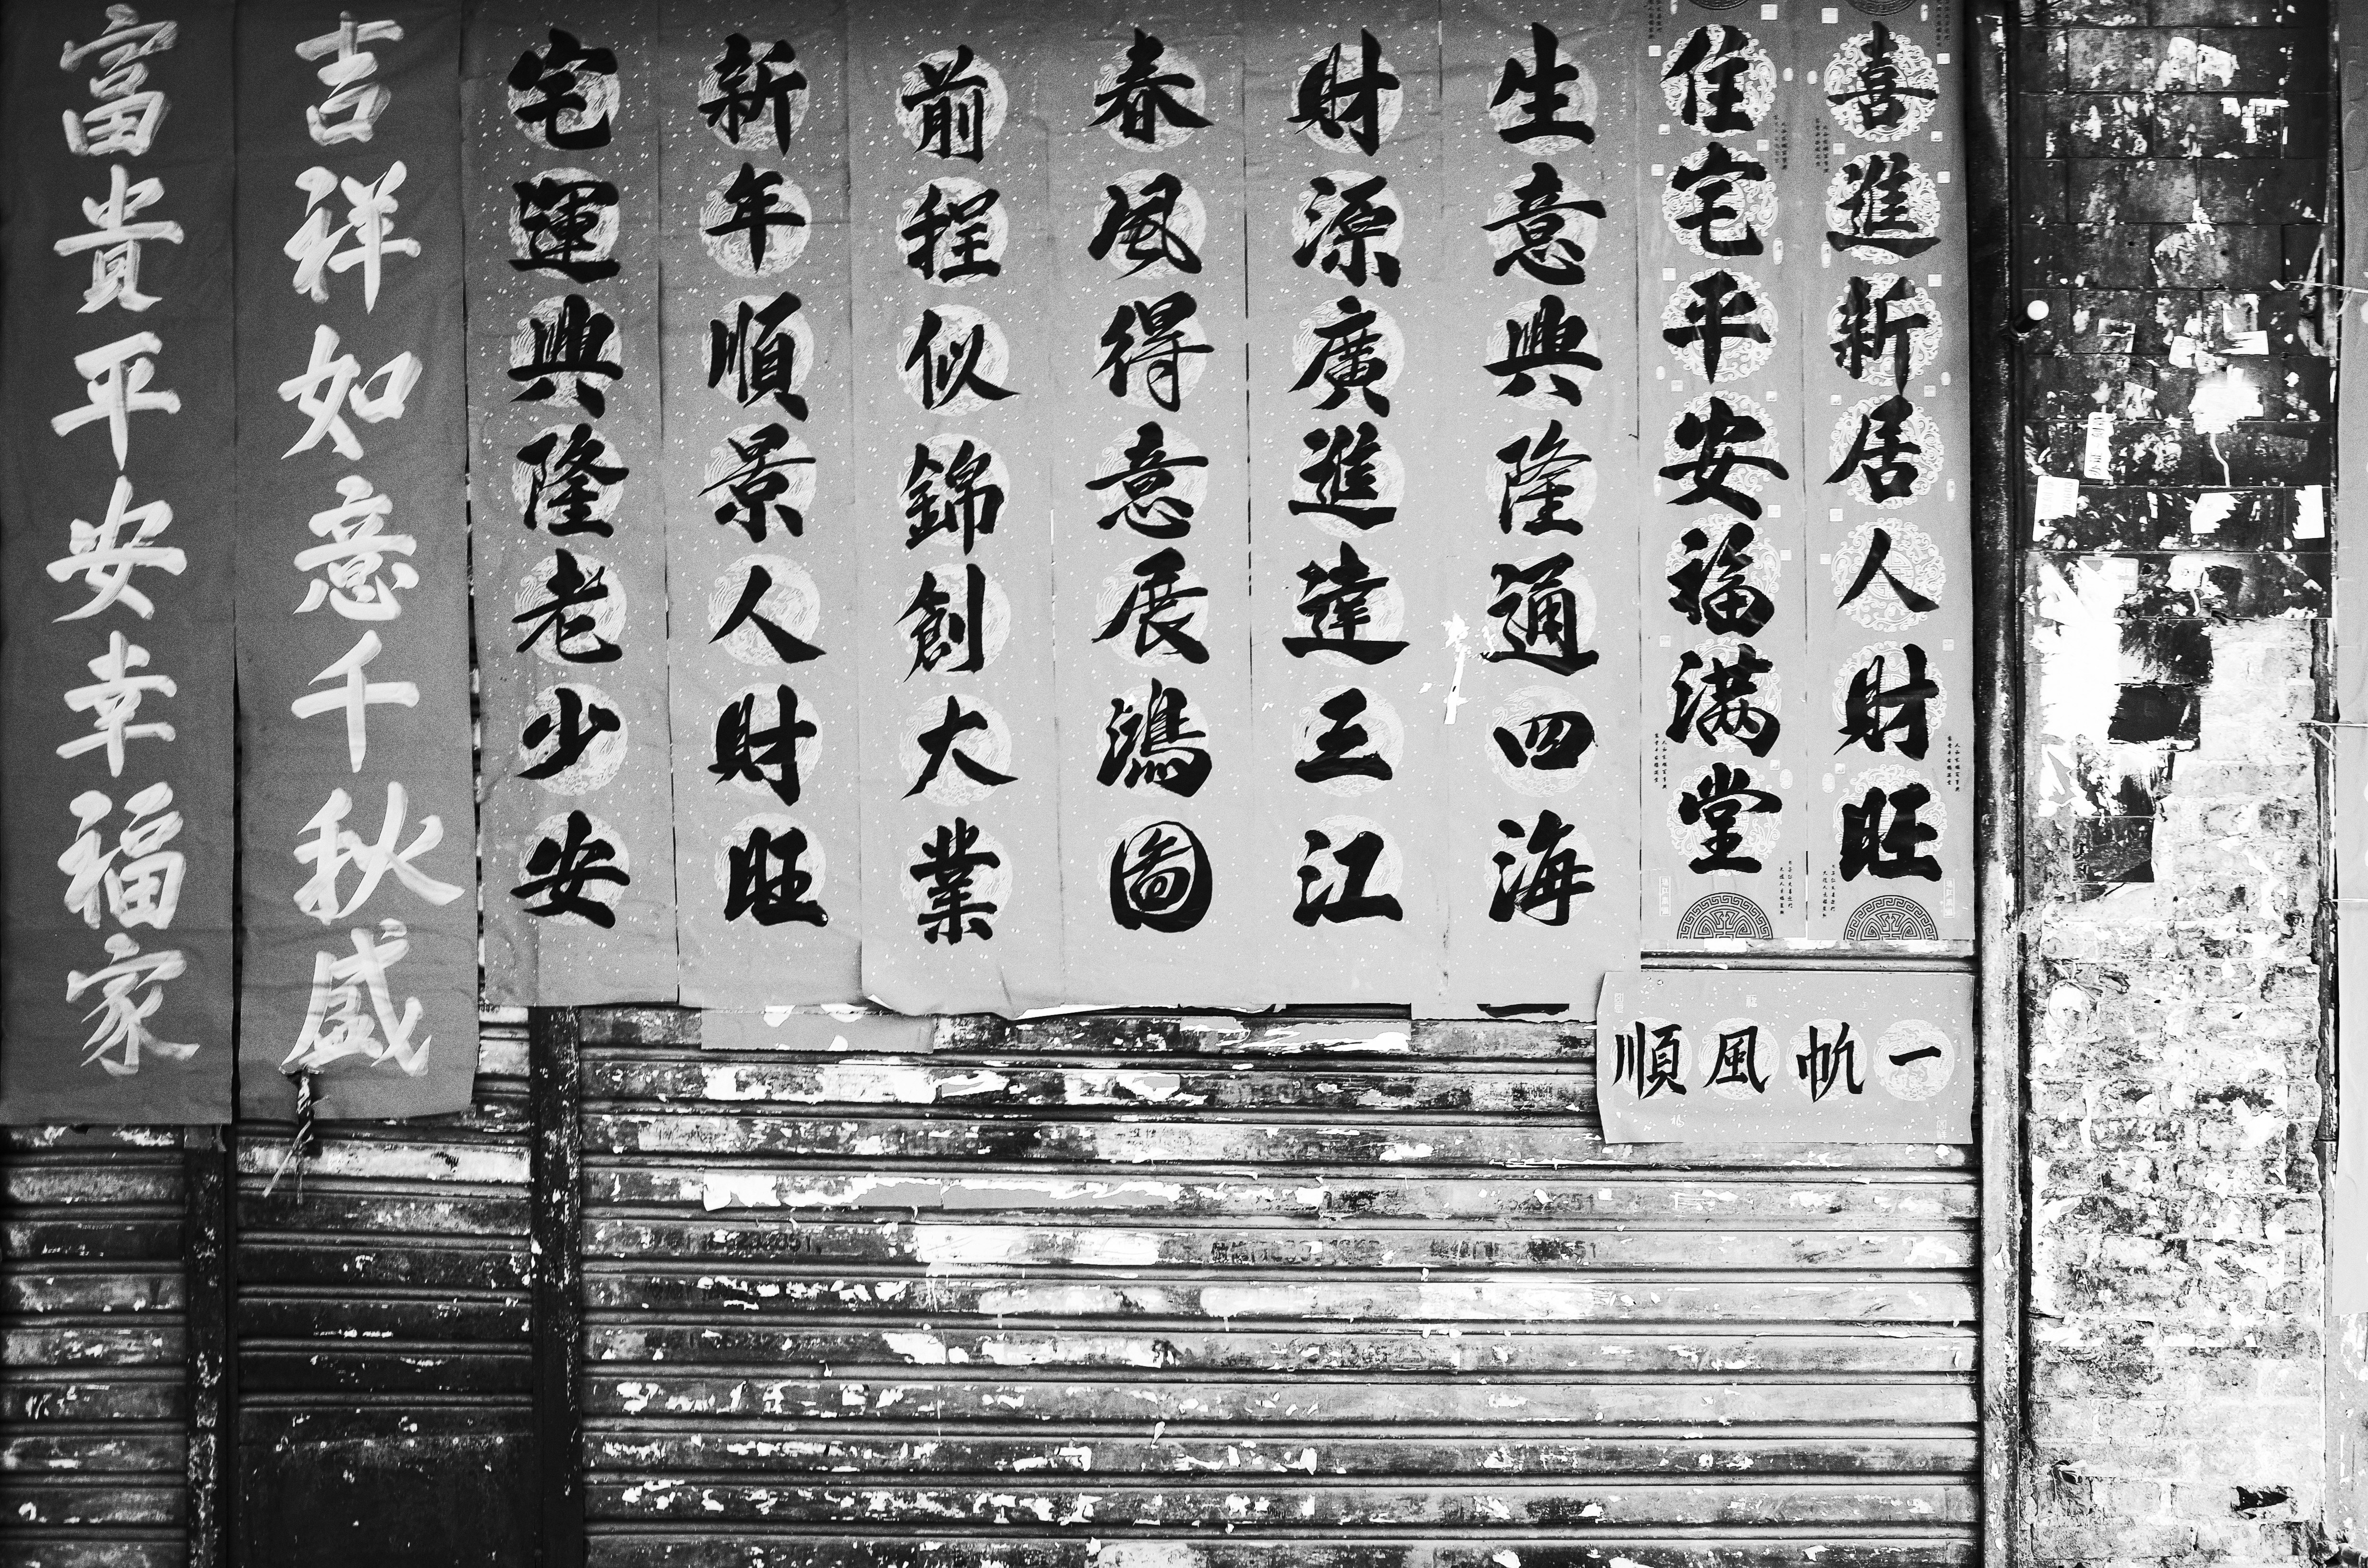 喜進新居人財旺
住宅平安福满堂
生意興隆通四海
財源廣進達三江
春風得意展鴻圖
前程似錦創大業
新年順景人財旺
宅運興隆老少安
吉祥如意千秋盛
富貴平安幸福家
一帆風順